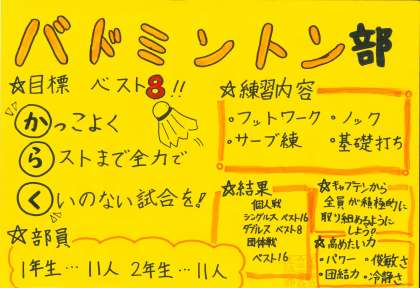 バドミントン部
☆目標 ベスト8!!
かっこよく
らストまで全力で
くいのない試合を!
☆部員
1年生…11人 2年生…11人
☆練習内容
・フットワーク ・ノック
・サーブ練 ・基礎打ち
☆結果
個人戦
シングルス ベスト16
ダブルス ベスト8
団体戦
ベスト16
☆キャプテンから
全員が積極的に
取り組めるように
しよう。
☆高めたい力
・パワー ・俊敏さ
・団結力 ・冷静さ